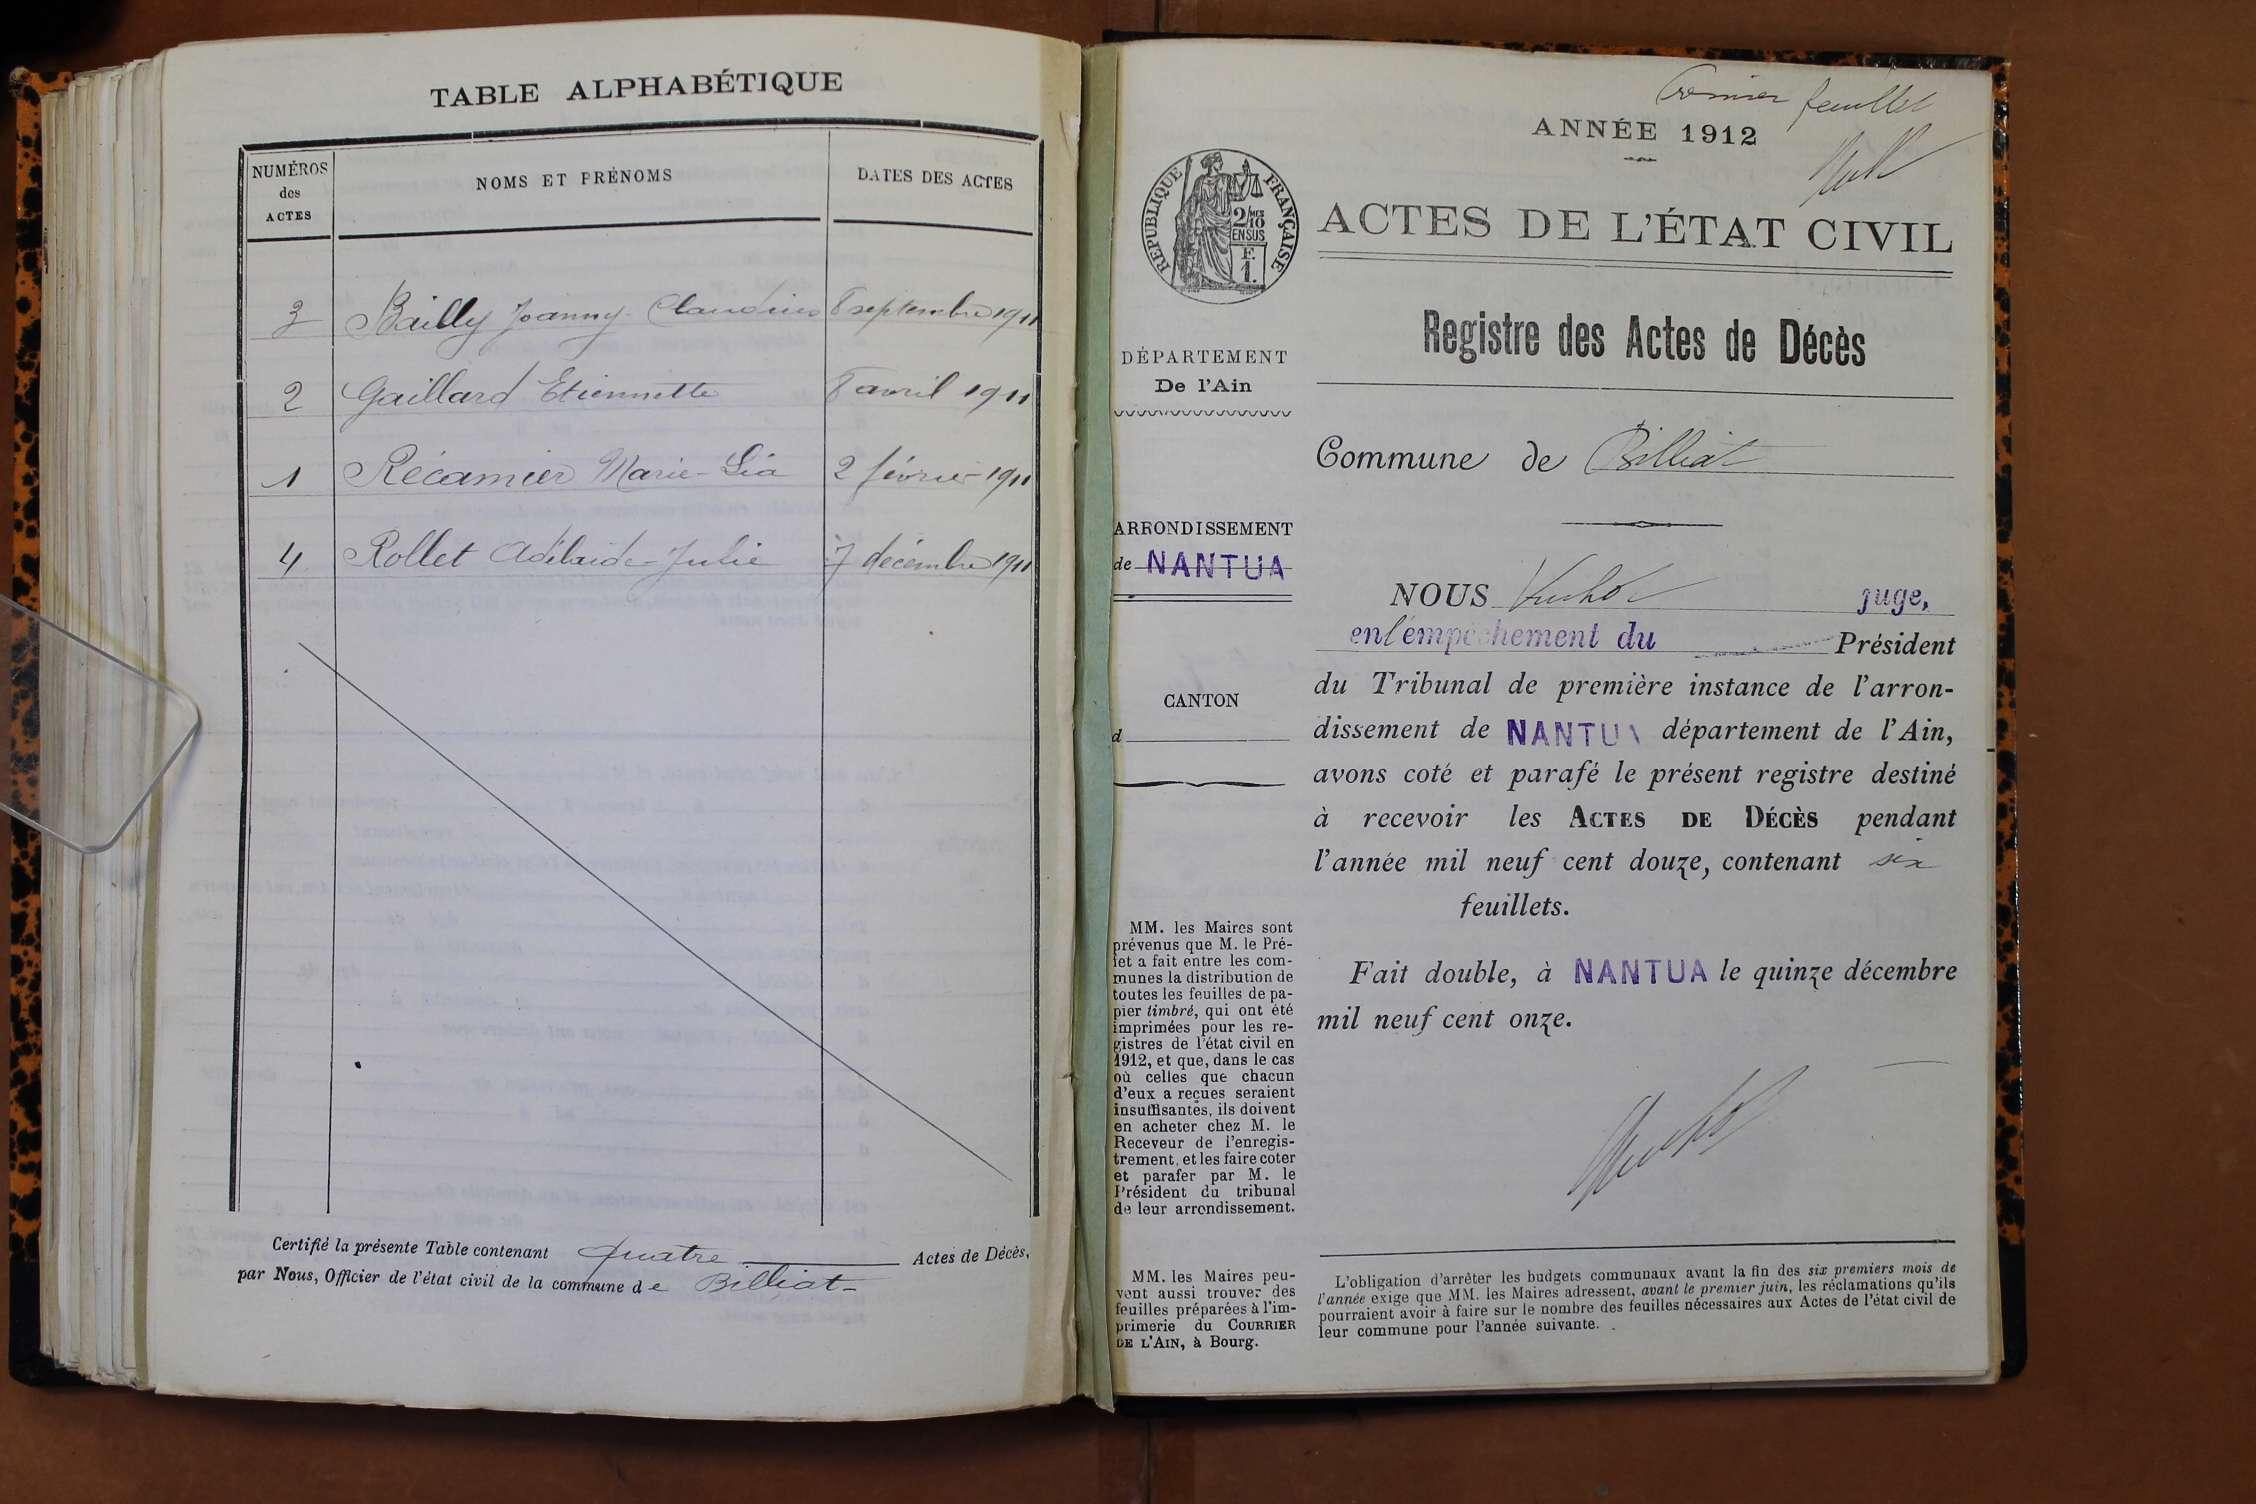 TABLE ALPHABÉTIQUE
NUMÉROS des ACTES
NOMS ET PRÉNOMS
DATES DES ACTES
3 Bailly Joanny-Claudius 8 septembre 1911
2 Gaillard Etiennette 8 avril 1911
1 Récamier Marie-Léa 2 février 1911
4 Rollet Adélaïde-Julie 7 décembre 1911
Certifié la présente Table contenant quatre Actes de Décès,
par Nous, Officier de l'état civil de la commune de Billiat
Premier feuillet
ANNÉE 1912
RÉPUBLIQUE FRANÇAISE
2/10 MES
EN SUS
F.
1.
ACTES DE L'ÉTAT CIVIL
Registre des Actes de Décès
DÉPARTEMENT
De l'Ain
Commune de Billiat
ARRONDISSEMENT
de NANTUA
CANTON
d
NOUS juge,
en l'empêchement du Président
du Tribunal de première instance de l'arron-
dissement de NANTUA département de l'Ain,
avons coté et parafé le présent registre destiné
à recevoir les ACTES DE DÉCÈS pendant
l'année mil neuf cent douze, contenant six
feuillets.
Fait double, à NANTUA le quinze décembre
mil neuf cent onze.
MM. les Maires sont
prévenus que M. le Pré-
fet a fait entre les com-
munes la distribution de
toutes les feuilles de pa-
pier timbré, qui ont été
imprimées pour les re-
gistres de l'état civil en
1912, et que, dans le cas
où celles que chacun
d'eux a reçues seraient
insuffisantes, ils doivent
en acheter chez M. le
Receveur de l'enregis-
trement, et les faire coter
et parafer par M. le
Président du tribunal
de leur arrondissement.
MM. les Maires peu-
vent aussi trouver des
feuilles préparées à l'im-
primerie du COURRIER
DE L'AIN, à Bourg.
L'obligation d'arrêter les budgets communaux avant la fin des six premiers mois de
l'année exige que MM. les Maires adressent, avant le premier juin, les réclamations qu'ils
pourraient avoir à faire sur le nombre des feuilles nécessaires aux Actes de l'état civil de
leur commune pour l'année suivante.